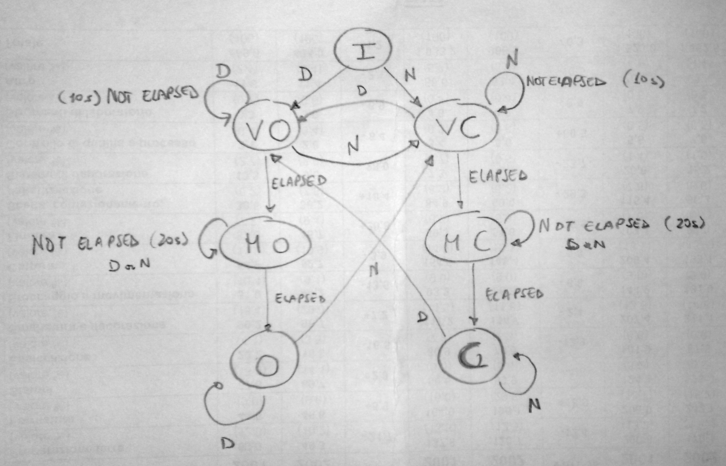 I
D
N
D
N
(10s) NOT ELAPSED
NOT ELAPSED (10s)
D
VO
VC
N
ELAPSED
ELAPSED
NOT ELAPSED (20s)
D or N
MO
MC
NOT ELAPSED (20s)
D or N
N
ELAPSED
ELAPSED
D
O
C
D
N